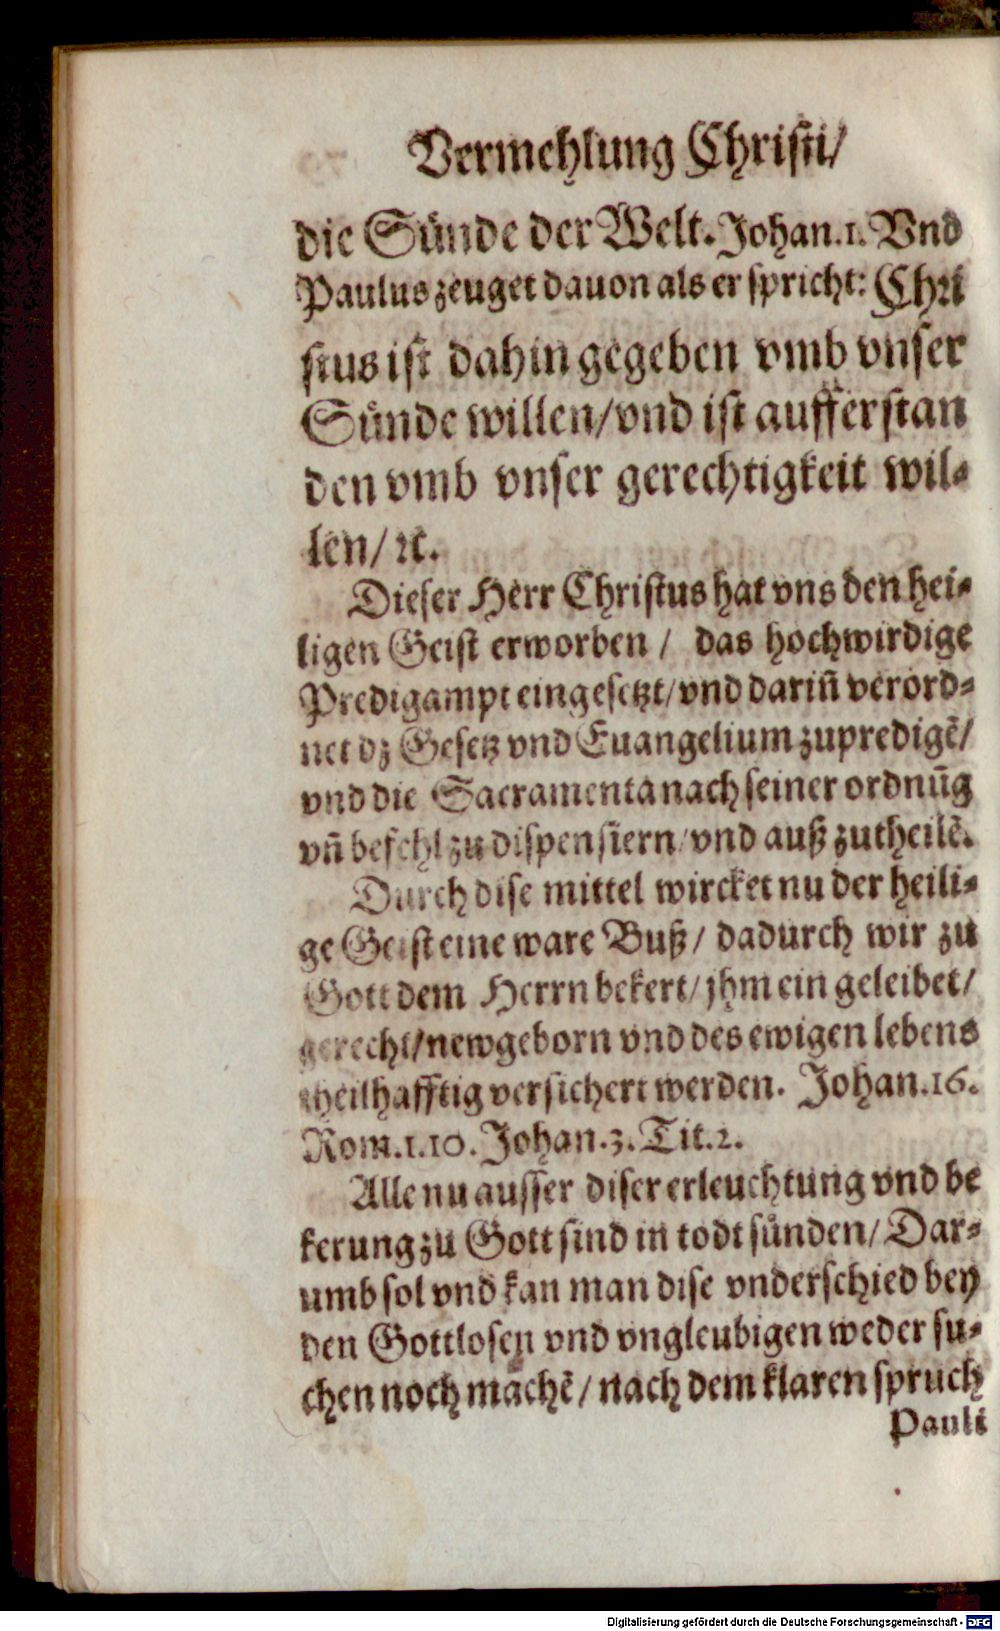 Vermehlung Christi/
die Sünde der Welt. Johan.1. Vnd
Paulus zeuget dauon als er spricht: Chri
stus ist dahin gegeben vmb vnser
Sünde willen/vnd ist aufferstan
den vmb vnser gerechtigkeit wil-
len/ ꝛc.
Dieser Herr Christus hat vns den hei-
ligen Geist erworben / das hochwirdige
Predigampt eingesetzt/vnd dariñ verord-
net dz Gesetz vnd Euangelium zupredigẽ/
vnd die Sacramenta nach seiner ordnũg
vñ befehl zu dispensiern/vnd auß zutheilẽ.
Durch dise mittel wircket nu der heili-
ge Geist eine ware Buß/ dadurch wir zu
Gott dem Herrn bekert/jhm ein geleibet/
gerecht/newgeborn vnd des ewigen lebens
theilhafftig versichert werden. Johan.16.
Rom.1.10. Johan.3. Tit.2.
Alle nu ausser diser erleuchtung vnd be
kerung zu Gott sind in todt sünden/ Dar-
umb sol vnd kan man dise vnderschied bey
den Gottlosen vnd vngleubigen weder su-
chen noch machẽ/ nach dem klaren spruch
Pauli
Digitalisierung gefördert durch die Deutsche Forschungsgemeinschaft - DFG